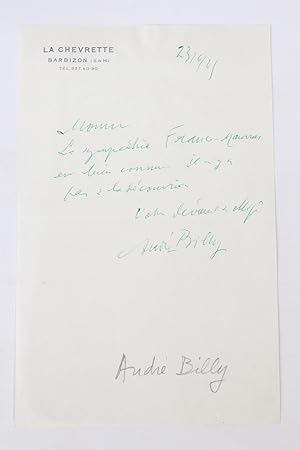 LA CHEVRETTE
BARBIZON (S&M)
TÉL. 237.40-90
Monsieur
La sympathie France-
est bien connue. il n'y a
pas à la découvrir
Votre dévoué & obligé
André Billy
André Billy